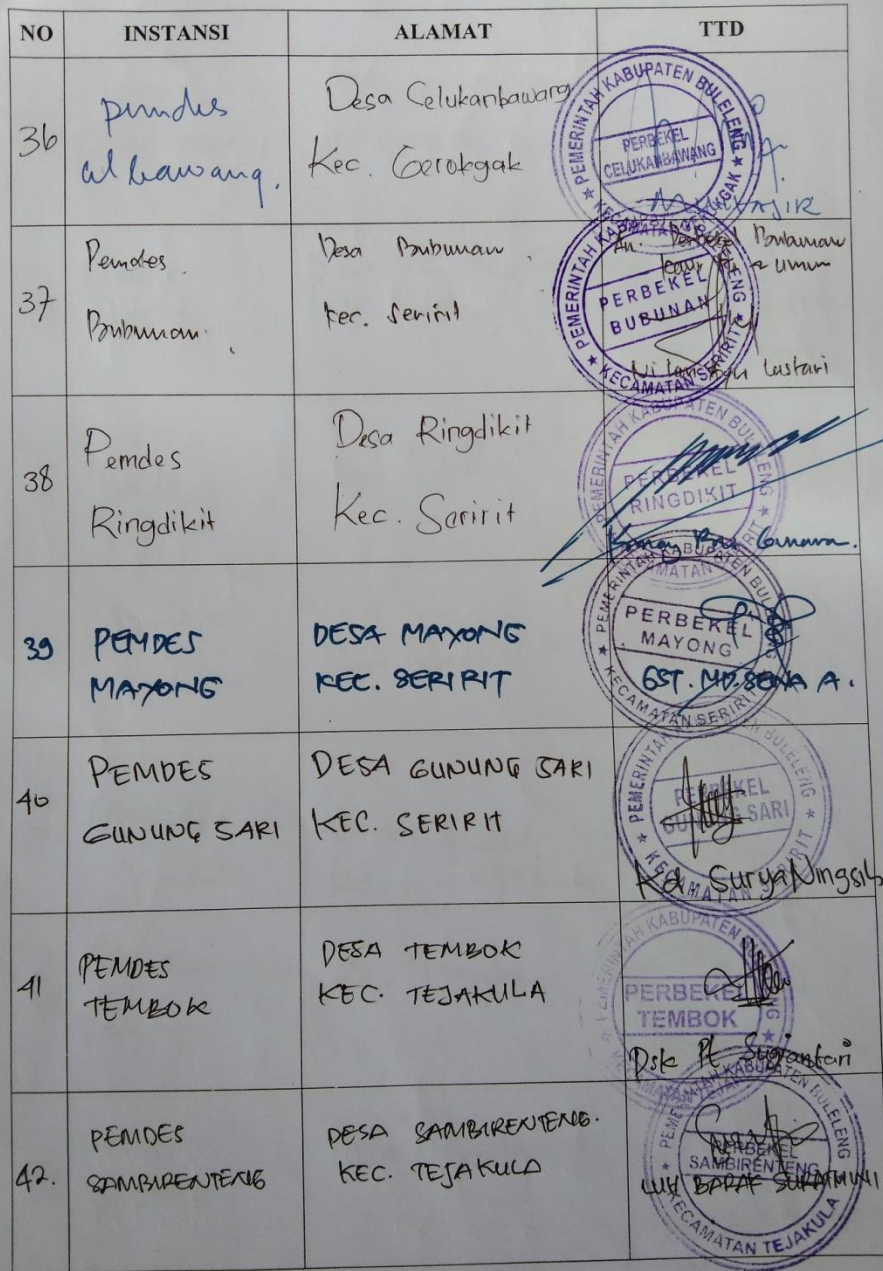 NO INSTANSI ALAMAT TTD
36
pemdes
cl bawang.
Desa Celukanbawang
Kec. Gerokgak
PEMERINTAH KABUPATEN BULELENG
PERBEKEL
CELUKANBAWANG
MULYAJIR
37
Pemdes
Bubunan.
Desa Bubunan
Kec. Seririt
An. Perbekel Bubunan
Kaur & Umum
PEMERINTAH KABUPATEN BULELENG
PERBEKEL
BUBUNAN
KECAMATAN SERIRIT
Lestari
38
Pemdes
Ringdikit
Desa Ringdikit
Kec. Seririt
PEMERINTAH KABUPATEN BULELENG
PERBEKEL
RINGDIKIT
39
PEMDES
MAYONG
DESA MAYONG
KEC. SERIRIT
PEMERINTAH KABUPATEN BULELENG
PERBEKEL
MAYONG
KECAMATAN SERIRIT
GST. MD. SENA A.
40
PEMDES
GUNUNG SARI
DESA GUNUNG SARI
KEC. SERIRIT
PEMERINTAH BULELENG
PERBEKEL
GUNUNG SARI
KECAMATAN SERIRIT
Kd. SuryaNingsih
41
PEMDES
TEMBOK
DESA TEMBOK
KEC. TEJAKULA
PEMERINTAH KABUPATEN BULELENG
PERBEKEL
TEMBOK
Dsk Pt Sugiantari
42.
PEMDES
SAMBIRENTENG
DESA SAMBIRENTENG.
KEC. TEJAKULA
PEMERINTAH KABUPATEN BULELENG
PERBEKEL
SAMBIRENTENG
KECAMATAN TEJAKULA
LUH BARAK SURATMINI